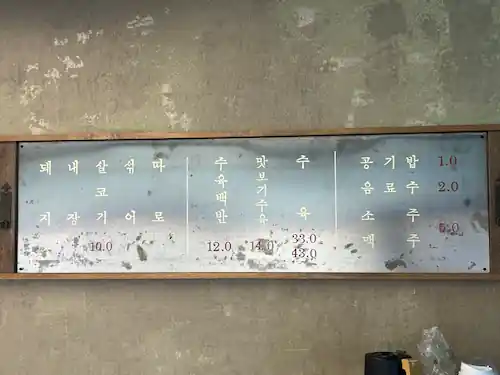 돼지
내장
살코기
섞어
따로
10.0
수육백반
12.0
맛보기수육
14.0
수육
33.0
43.0
공기밥 1.0
음료수 2.0
소주
맥주